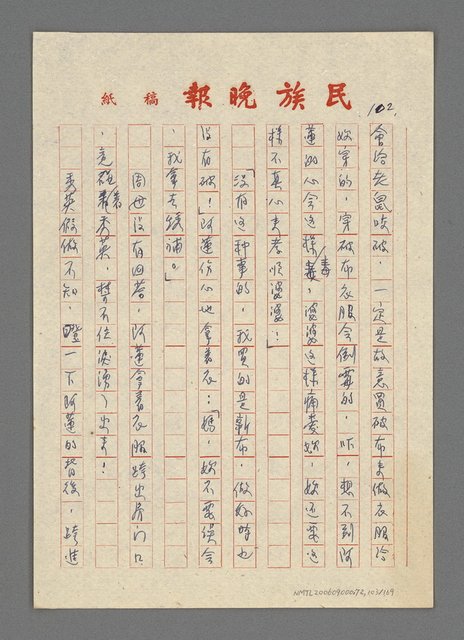 102.
民族晚報 稿紙
會給老鼠咬破，一定是故意買破布來做衣服給
妳穿的，穿破布衣服會倒霉的，咔，想不到阿
蓮的心會這樣毒，婆婆這樣痛愛妳，妳還要這
樣不真心來孝順婆婆？
「沒有這种事的，我買的是新布，做好時也
沒有破！」阿蓮伤心地拿著衣：「媽，妳不要誤會
，我拿去縫補。」
周母沒有回答，阿蓮拿著衣服跨出房门口
，竟碰著秀英，禁不住淚湧出來！
秀英假做不知，瞪一下阿蓮的背後，跨進
NMTL20060900072,103/169